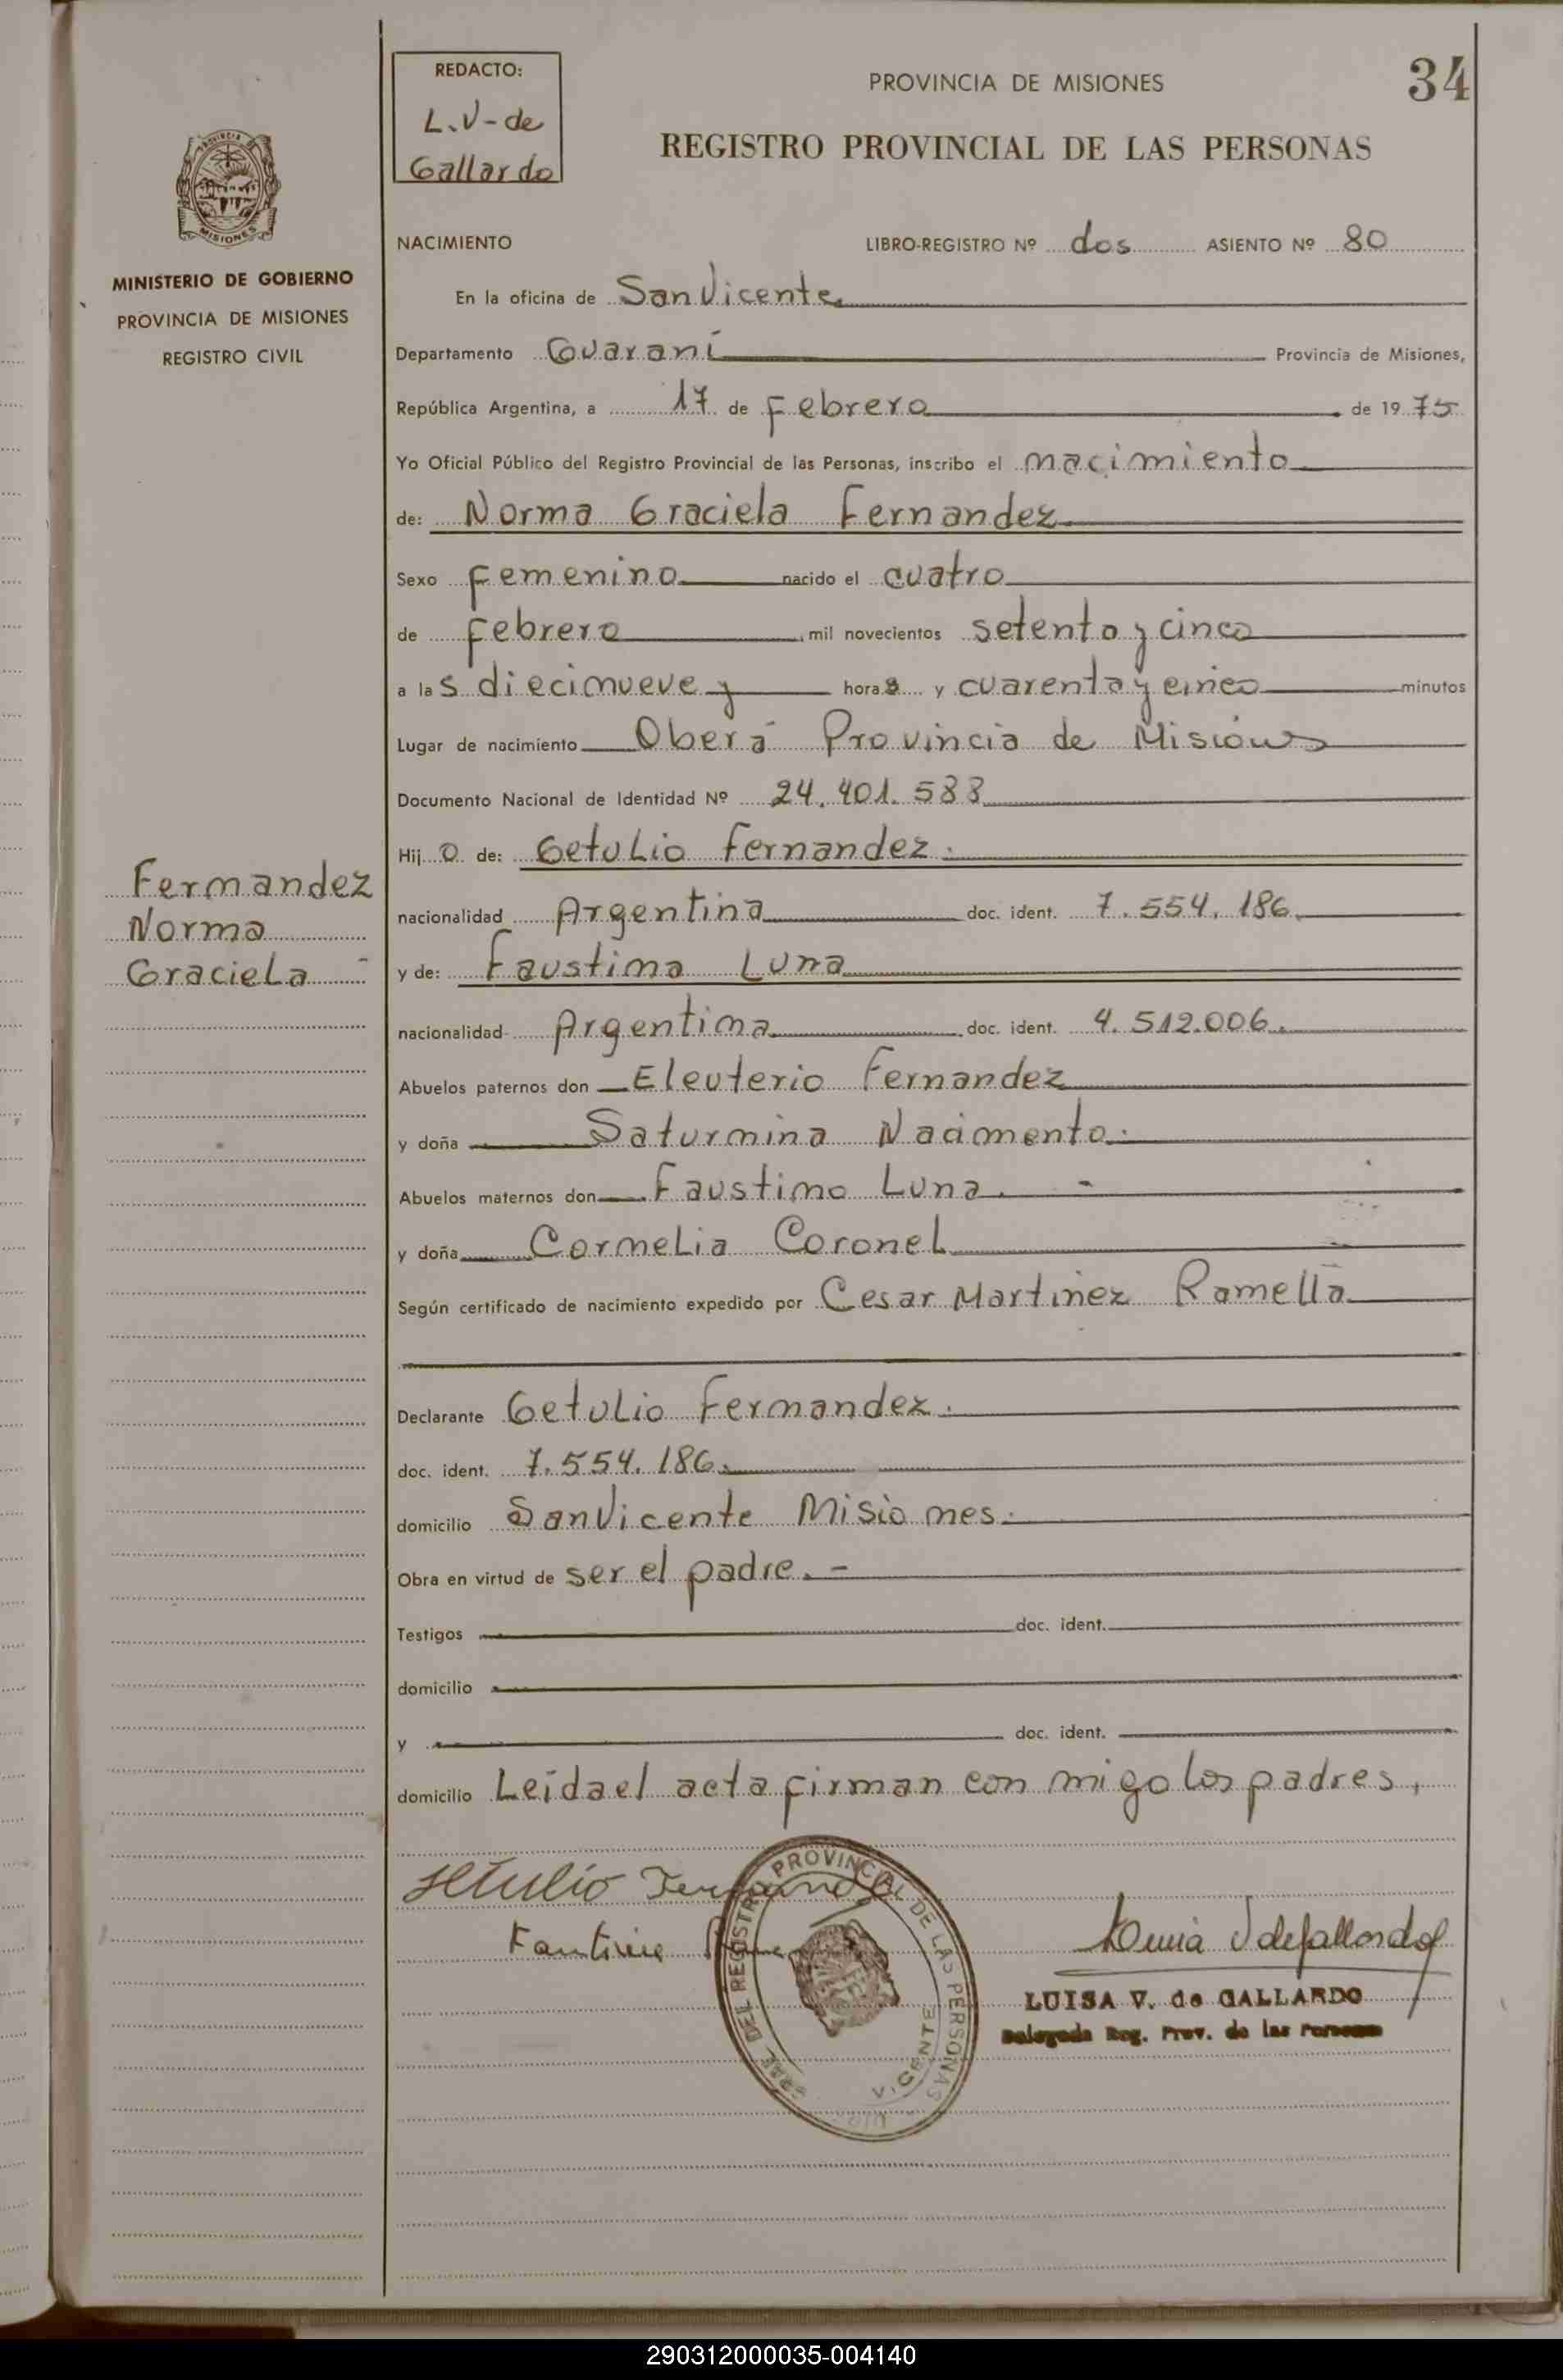 REDACTO:
L.V-de
Gallardo
PROVINCIA DE MISIONES
34
REGISTRO PROVINCIAL DE LAS PERSONAS
PROVINCIA DE
MISIONES
MINISTERIO DE GOBIERNO
PROVINCIA DE MISIONES
REGISTRO CIVIL
NACIMIENTO LIBRO-REGISTRO Nº dos ASIENTO Nº 80
En la oficina de San Vicente
Departamento Guaraní Provincia de Misiones,
República Argentina, a 17 de Febrero de 1975
Yo Oficial Público del Registro Provincial de las Personas, inscribo el nacimiento
de: Norma Graciela Fernandez
Sexo Femenino nacido el cuatro
de Febrero mil novecientos setenta y cinco
a las diecinueve y horas y cuarenta y cinco minutos
Lugar de nacimiento Oberá Provincia de Misiones
Documento Nacional de Identidad Nº 24.401.588
Hija de: Getulio Fernandez.
nacionalidad Argentina doc. ident. 7.554.186.
y de: Faustina Luna
nacionalidad Argentina doc. ident. 4.512.006.
Abuelos paternos don Eleuterio Fernandez
y doña Saturnina Nacimento.
Abuelos maternos don Faustino Luna. -
y doña Cornelia Coronel
Según certificado de nacimiento expedido por Cesar Martinez Ramella
Declarante Getulio Fernandez.
doc. ident. 7.554.186.
domicilio San Vicente Misiones.
Obra en virtud de ser el padre. -
Testigos doc. ident.
domicilio
y doc. ident.
domicilio Leída el acta firman conmigo los padres,
Fernandez
Norma
Graciela -
Getulio Fernandez
DEL REGISTRO PROVINCIAL DE LAS PERSONAS
VICENTE
LUISA V. de GALLARDO
Delegada Reg. Prov. de las Personas
290312000035-004140